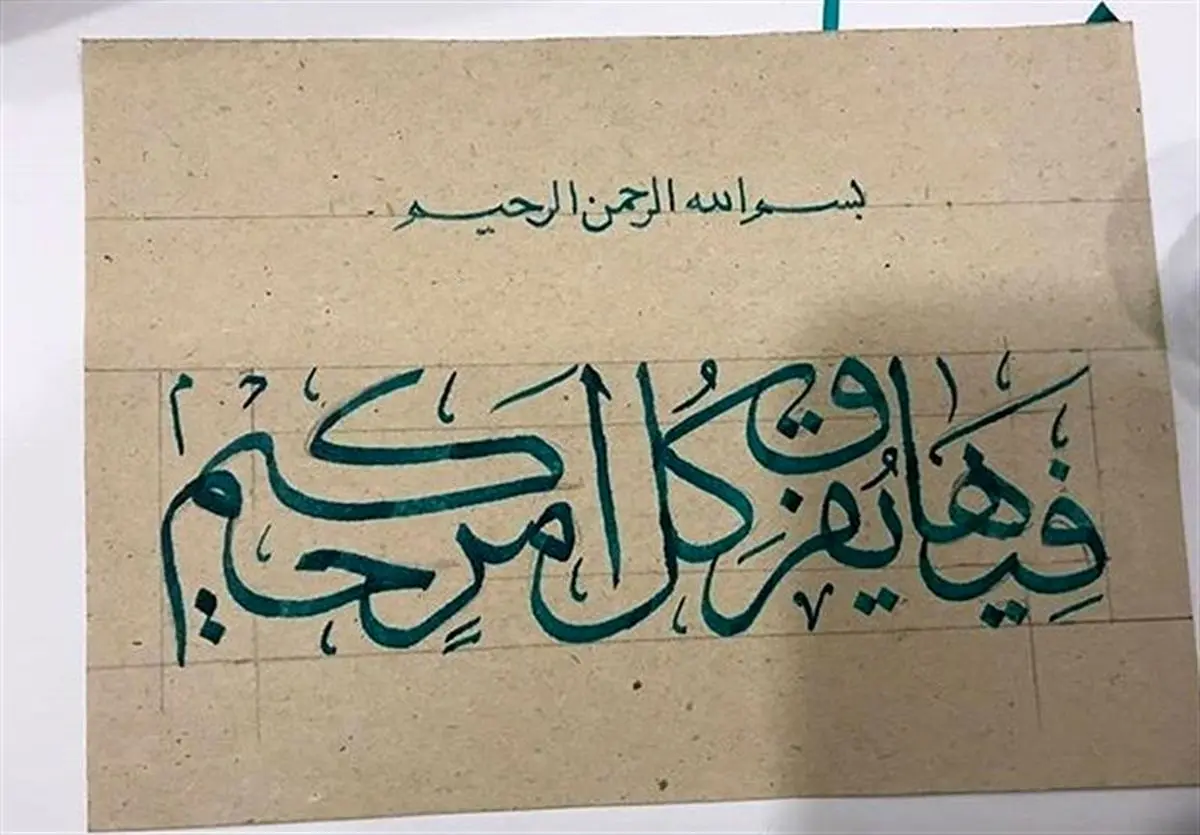 بسم الله الرحمن الرحیم
فِيهَا يُفرَقُ كُلُّ امرٍ حكيم